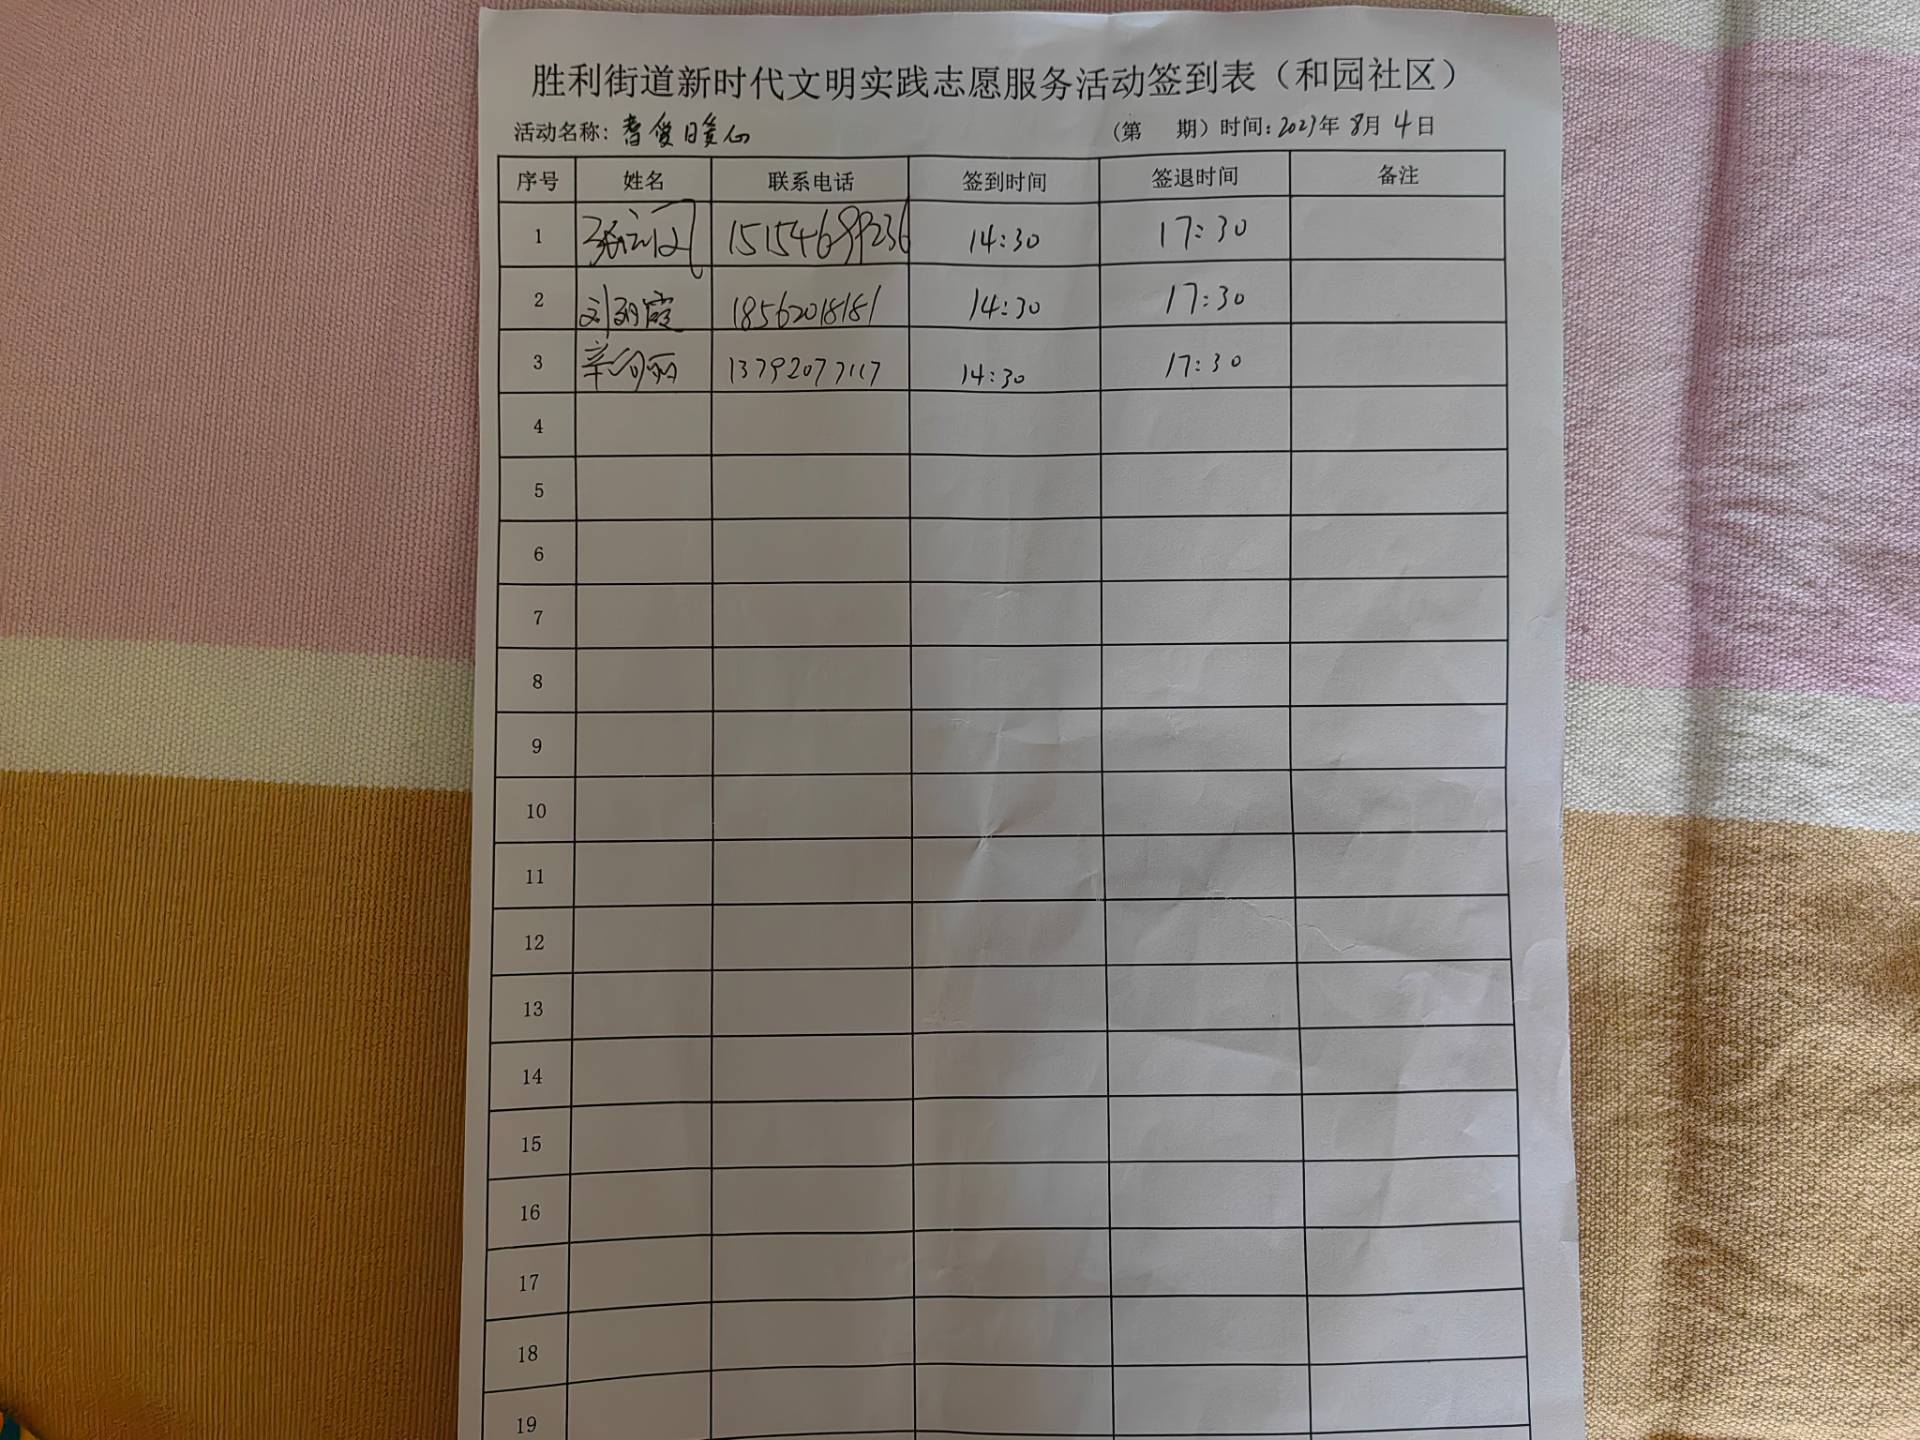 胜利街道新时代文明实践志愿服务活动签到表（和园社区）
活动名称: 耆爱暖心 （第 期）时间: 2023年 8月 4日
序号 姓名 联系电话 签到时间 签退时间 备注
1 15154699236 14:30 17:30
2 刘丽霞 18562018181 14:30 17:30
3 13792077117 14:30 17:30
4
5
6
7
8
9
10
11
12
13
14
15
16
17
18
19